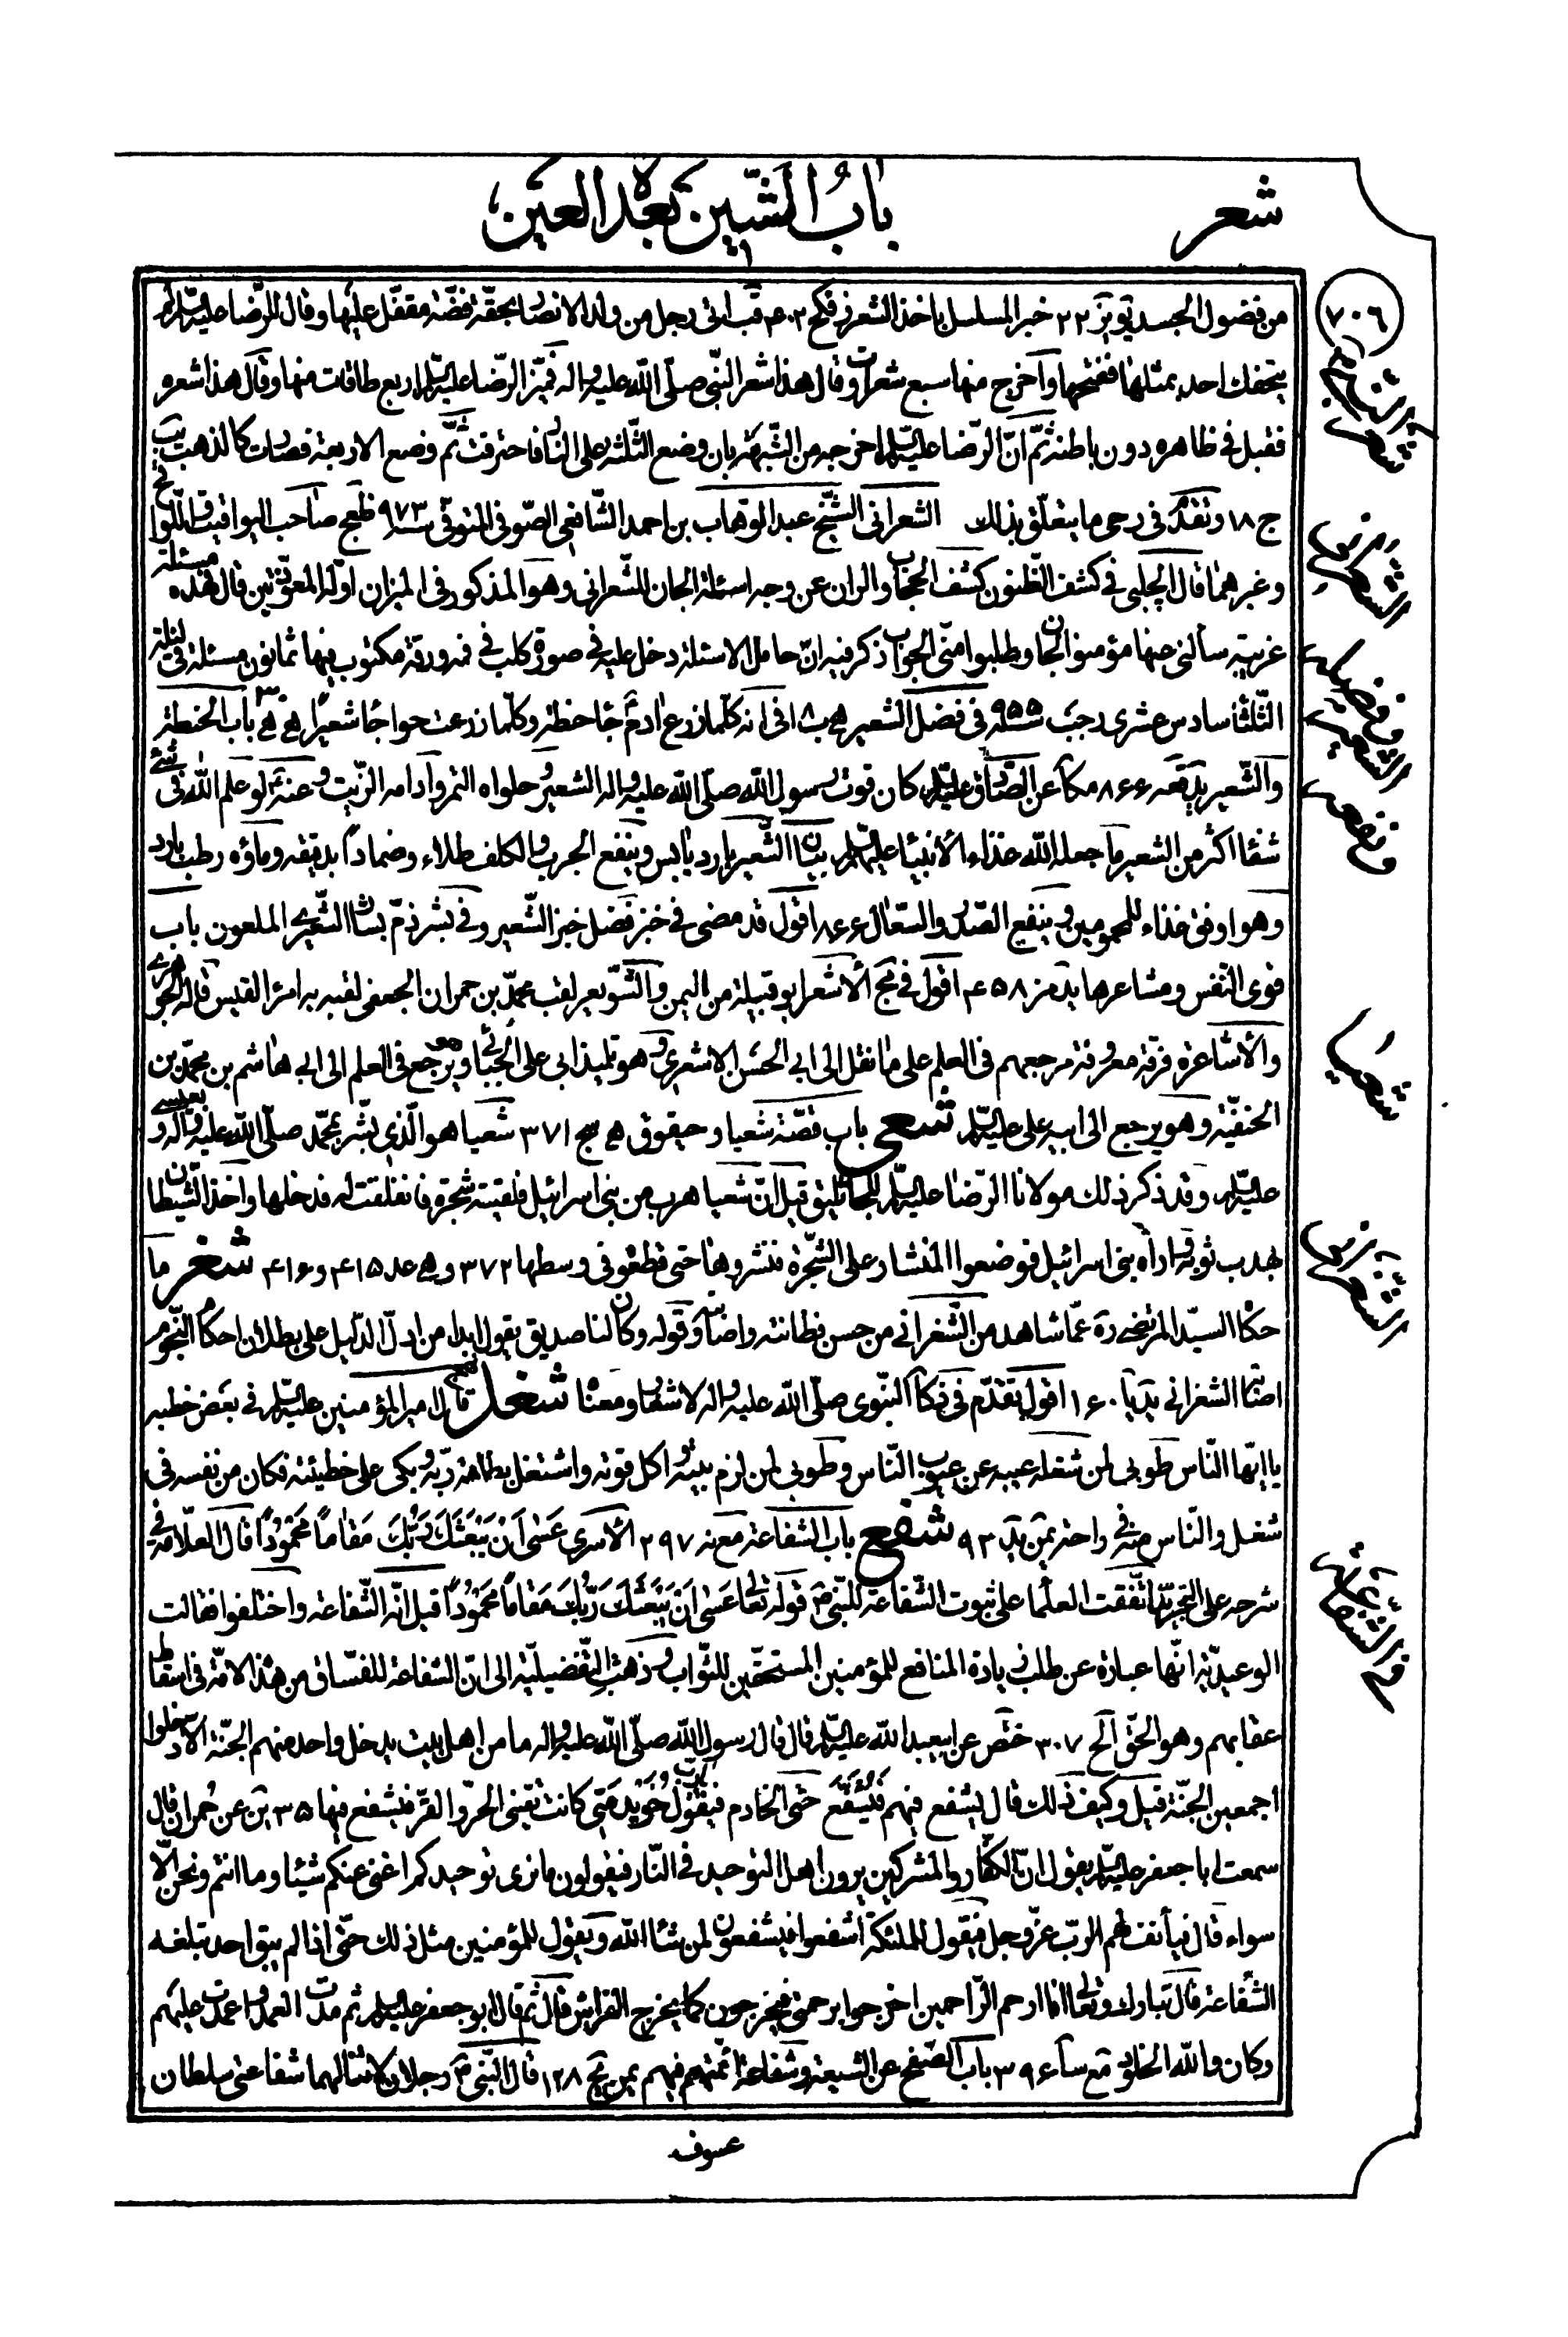 شعر
باب الشين بعده العين
٧٠٦
من فضول الجسد خبر المسلسل باخذ الشعر اتى رجل من ولد الانصار بحقة فضة مقفل عليها وقال للرضا عليه السلام لم
يتحفك احد بمثلها ففتحها واخرج منها سبع شعرات وقال هذا شعر النبى صلى الله عليه واله فميز الرضا عليه السلام اربع طاقات منها وقال هذا شعره
فقبل فى ظاهره دون باطنه ثم ان الرضا عليه السلام اخرجه من الشبهة بان وضع الثلثة على النار فاحترقت ثم وضع الاربعة فصارت كالذهب
ج ١٨ وتقدم فى رحى ما يتعلق بذلك الشعرانى الشيخ عبد الوهاب بن احمد الشافعى الصوفى المتوفى سنة ٩٧٣ صاحب اليواقيت واللواقح
وغيرهما قال الچلبى فى كشف الظنون كشف الحجاب والران عن وجه اسئلة الجان للشعرانى وهو المذكور فى الميزان اوله قال هذه مسئلة
غريبة سألنى عنها مؤمنو الجان وطلبوا منى الجواب ذكر فيه ان حامل الاسئلة دخل عليه فى صورة كلب فى فمه ورقة مكتوب فيها ثمانون مسئلة فى ليلة
الثلثا سادس عشرى رجب سنة ٩٥٥ فى فضل الشعير فى انه كلما زرع ادم جا حنطة وكلما زرعت حوا جا شعيرا باب الحنطة
والشعير ٨٦٦ عن الصادق عليه السلام كان قوت رسول الله صلى الله عليه واله الشعير وحلواه التمر وادامه الزيت وعنه لو علم الله فى شئ
شفا اكثر من الشعير ما جعله الله غذاء الأنبياء عليهم السلام بيان الشعير بارد يابس وينفع الجرب والكلف طلاء وضمادا بدقيقه وماؤه رطب بارد
وهو اوفق غذاء للمحمومين وينفع الصدر والسعال ٨٦٦ اقول قد مضى فى خبز فضل خبز الشعير وفى بشر ذم بشار الشعيرى الملعون باب
قوى النفس ومشاعرها ٤٥٨ اقول فى الأشعر ابو قبيلة من اليمن والشويعر لقب محمد بن حمران الجعفى لقبه به امرؤ القيس قاله الجوهرى
والاشاعرة فرقة معروفة مرجعهم فى العلم على ما نقل الى ابى الحسن الاشعرى وهو تلميذ ابى على الجبائى ويرجع فى العلم الى ابى هاشم بن محمد بن
الحنفية وهو يرجع الى ابيه على عليه السلام شعى باب قصة شعيا وحيقوق ٣٧١ شعيا هو الذى بشر بمحمد صلى الله عليه واله وبعيسى
عليه السلام وقد ذكر ذلك مولانا الرضا عليه السلام للجاثليق قيل ان شعيا هرب من بنى اسرائيل فلقيته شجرة فانفلقت له فدخلها واخذ الشيطان
بهدب ثوبه واراه بنى اسرائيل فوضعوا المنشار على الشجرة فنشروها حتى قطعوه فى وسطها ٣٧٢ و ٤١٥ و ٤١٦ شغر ما
حكاه السيد المرتضى ره عما شاهد من الشغرانى من حسن فطانته واصابته وقوله وكان لنا صديق يقول ابدا من ادل الدليل على بطلان احكام النجوم
اصابة الشغرانى ١٦٠ اقول تقدم فى ذكاء النبوى صلى الله عليه واله لا شغار ومعناه شغل قال امير المؤمنين عليه السلام فى بعض خطبه
يا ايها الناس طوبى لمن شغله عيبه عن عيوب الناس وطوبى لمن لزم بيته واكل قوته واشتغل بطاعة ربه وبكى على خطيئته فكان من نفسه فى
شغل والناس منه فى راحة ٩٣ شفع باب الشفاعة ٢٩٧ الأسرى عَسٰى اَنْ يَبْعَثَكَ رَبُّكَ مَقاماً مَحْمُوداً قال العلامة فى
شرحه على التجريد اتفقت العلما على ثبوت الشفاعة للنبى قوله تعالى عَسٰى اَنْ يَبْعَثَكَ رَبُّكَ مَقاماً مَحْمُوداً قيل انه الشفاعة واختلفوا فقالت
الوعيدية انها عبارة عن طلب زيادة المنافع للمؤمنين المستحقين للثواب وذهب التفضيلية الى ان الشفاعة للفساق من هذه الامة فى اسقاط
عقابهم وهو الحق الخ ٣٠٧ عن ابيعبد الله عليه السلام قال قال رسول الله صلى الله عليه واله ما من اهل بيت يدخل واحد منهم الجنة الا دخلوا
اجمعين الجنة قيل وكيف ذلك قال يشفع فيهم فَيُشَفَّع حتى الخادم فيقول يا رب خويدمتى كانت تقينى الحر والقر فيشفع فيها ٣٥ عن حُمران قال
سمعت ابا جعفر عليه السلام يقول ان الكفار والمشركين يرون اهل التوحيد فى النار فيقولون ما نرى توحيدكم اغنى عنكم شيئا وما انتم ونحن الا
سواء قال فيأنف لهم الرب عز وجل فيقول للملئكة اشفعوا فيشفعون لمن شاء الله ويقول للمؤمنين مثل ذلك حتى اذا لم يبق احد تبلغه
الشفاعة قال تبارك وتعالى انا ارحم الراحمين اخرجوا برحمتى فيخرجون كما يخرج الفراش قال ثم قال ابو جعفر عليه السلام ثم مدت العمد واعمدت عليهم
وكان والله الخلود ٣٩٦ باب الصفح عن الشيعة وشفاعة ائمتهم فيهم ١٢٨ قال النبى رجلان لا تنالهما شفاعتى سلطان
الشعرانى
وفضيلة الشعير
ونفعه
شعيا
الشغرانى
فى الشفاعة
عسوف